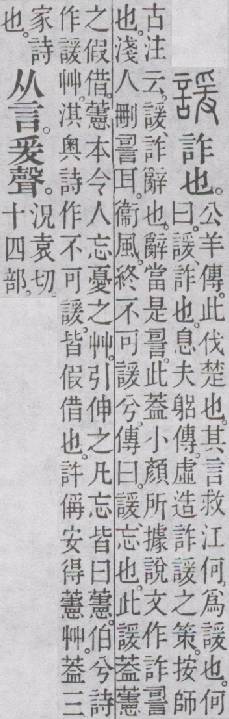 諼 詐也。公羊傳。此伐楚也。其言救江何。爲諼也。何
曰。諼、詐也。息夫躳傳。虛造詐諼之策。按師
古注云。諼、詐辭也。辭當是䛐。此葢小顏所據說文作詐䛐
也。淺人刪䛐耳。衞風。終不可諼兮。傳曰。諼、忘也。此諼葢藼
之假借。藼本令人忘憂之艸。引伸之凡忘皆曰藼。伯兮詩
作諼艸。淇奧詩作不可諼。皆假借也。許偁安得藼艸。葢三
家詩
也。
从言。爰聲。況袁切
十四部。